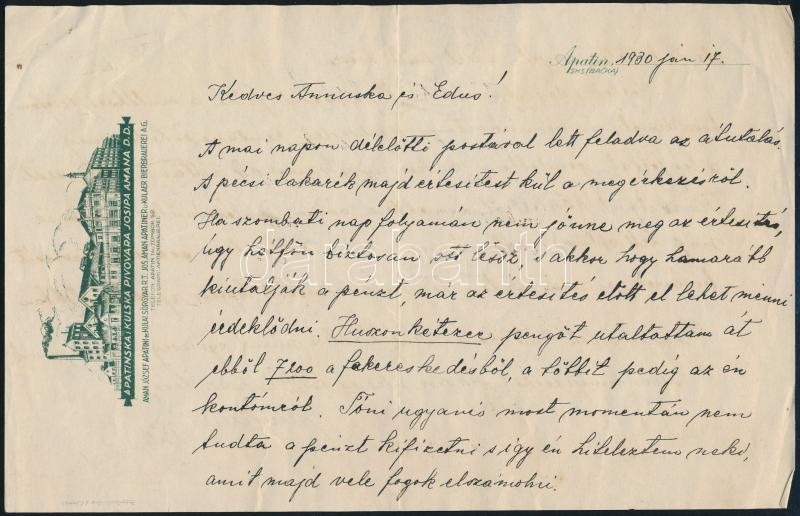 Apatin, 1930 jan 17.
SHS (BAČKA)
Kedves Annuska és Edus!
A mai napon délelőtti postával lett feladva az átutalás.
A pécsi takarék majd értesitést kül a megérkezésről.
Ha szombati nap folyamán nem jönne meg az értesités,
úgy hétfőn biztosan ott lessz, s akkor hogy hamarább
kiutalják a pénzt, már az értesités előtt el lehet menni
érdeklődni. Huszonkétezer pengőt utaltattam át
ebből 7200 a fakereskedésből, a többit pedig az én
kontómról. Tóni ugyanis most momentán nem
tudta a pénzt kifizetni s igy én hiteleztem neki,
amit majd vele fogok elszámolni.
APATINSKA I KULSKA PIVOVARA JOSIPA AMANA D.D.
AMAN JÓZSEF APATINI ÉS KULAI SÖRGYÁR R.T. JOS. AMAN APATINER U. KULAER BIERBRAUEREI A.G.
darabanth